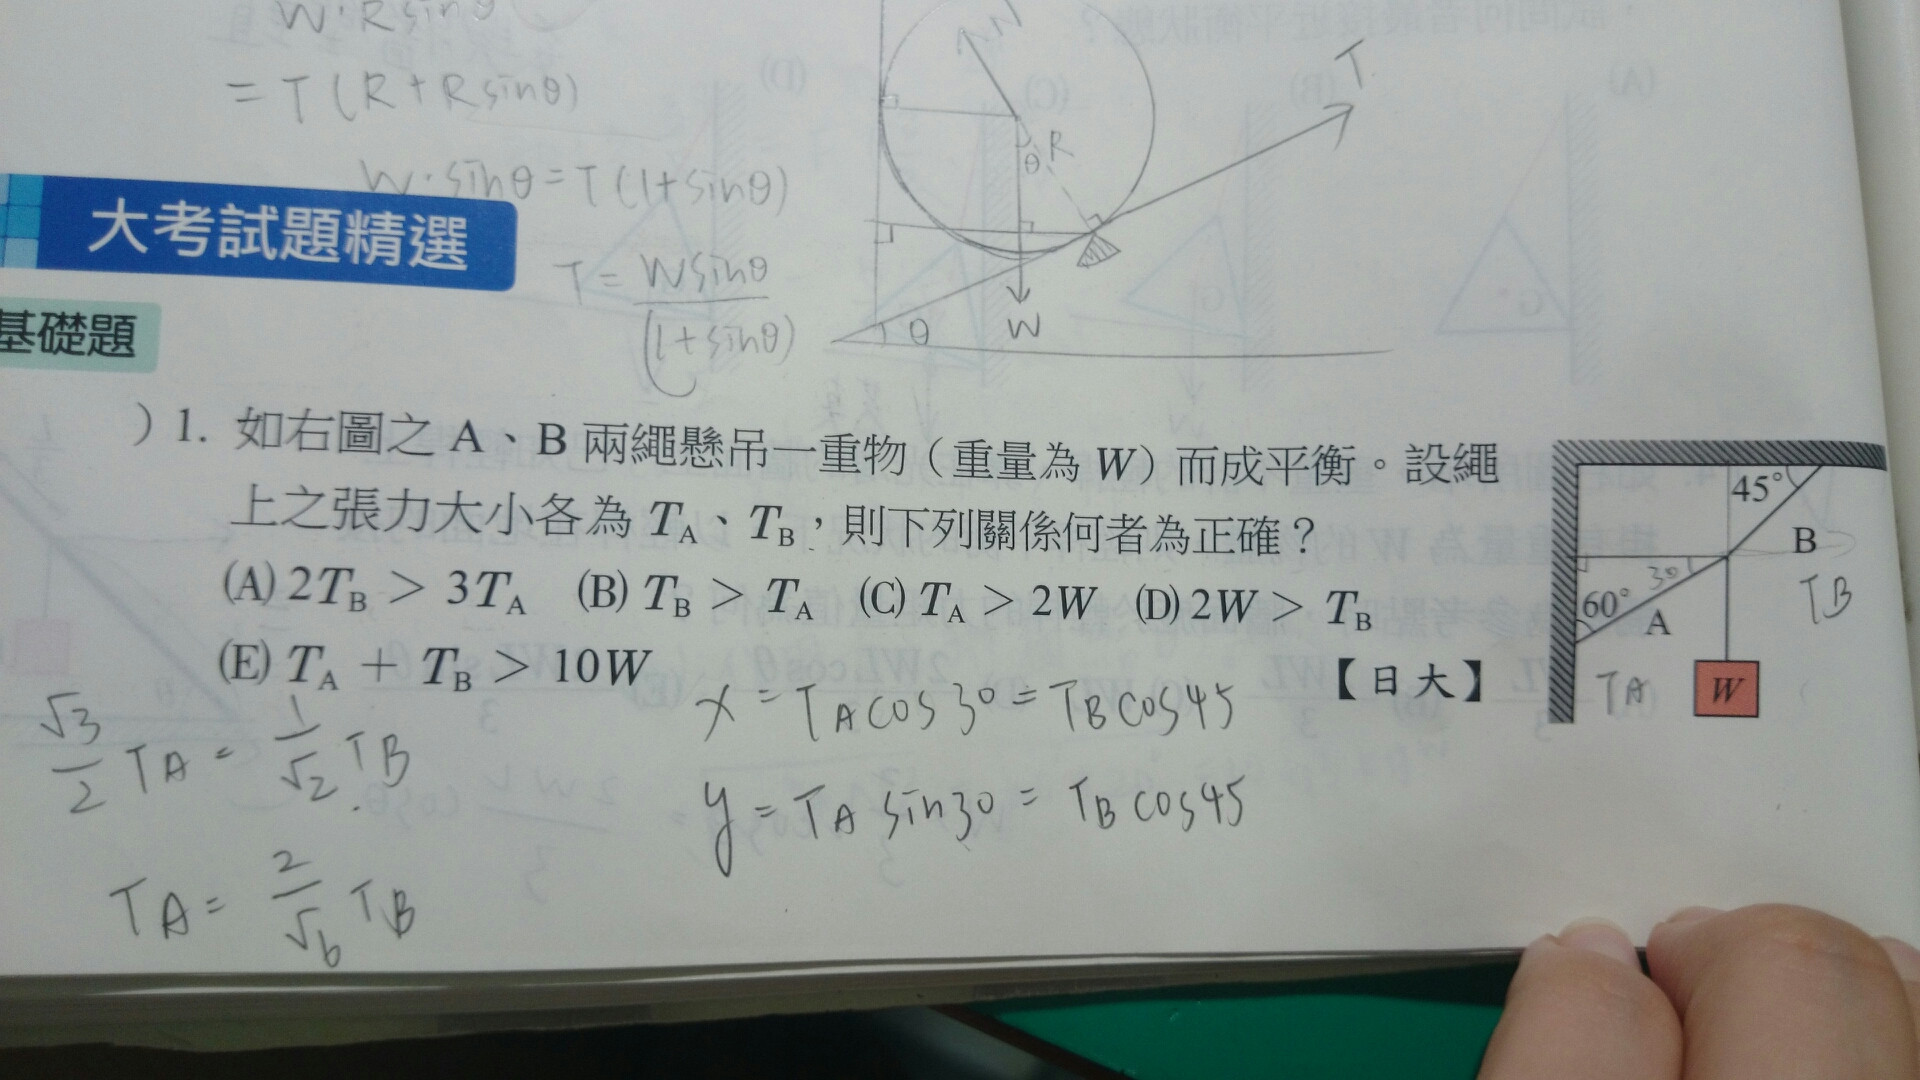 W·Rsinθ
= T(R+Rsinθ)
W·sinθ=T(1+sinθ)
T = Wsinθ
(1+sinθ)
N
T
R
θ
W
θ
大考試題精選
基礎題
)1. 如右圖之 A、B 兩繩懸吊一重物(重量為 W)而成平衡。設繩
上之張力大小各為 TA、TB,則下列關係何者為正確?
(A) 2TB > 3TA (B) TB > TA (C) TA > 2W (D) 2W > TB
(E) TA + TB > 10W 【日大】
45°
B
TB
30
60°
A
TA
W
x = TAcos30 = TBcos45
y = TA sin30 = TB cos45
√3/2 TA = 1/√2 TB
TA = 2/√6 TB